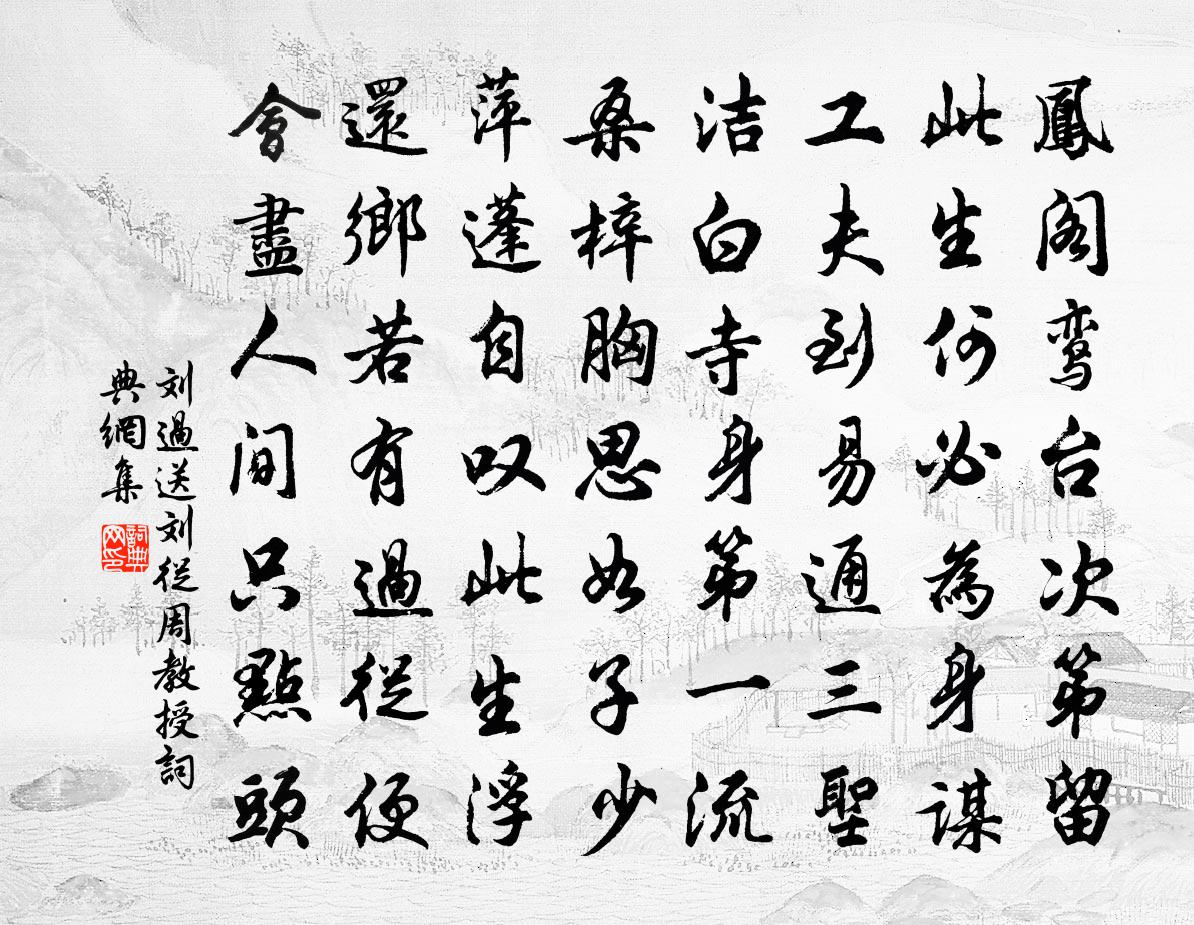 鳳阁鸾台次第留
此生何必為身謀
工夫到易通三聖
洁白寺身第一流
桑梓胸思如子少
萍蓬自叹此生浮
還鄉若有過從便
會盡人间只點頭
刘過送刘從周教授詞
典網集
詞典网印